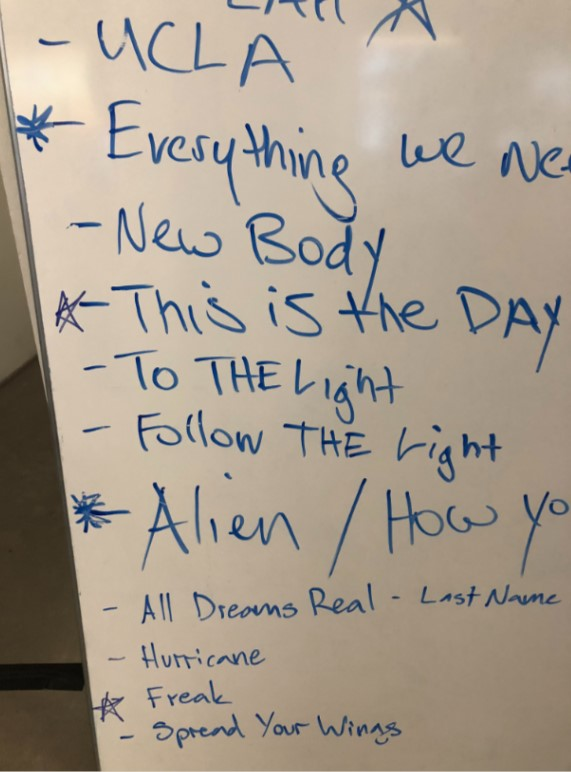 - UCLA
- Everything we Ne
- New Body
- This is the DAY
- To THE Light
- Follow THE Light
- Alien / How Yo
- All Dreams Real - Last Name
- Hurricane
Freak
- Spread Your Wings